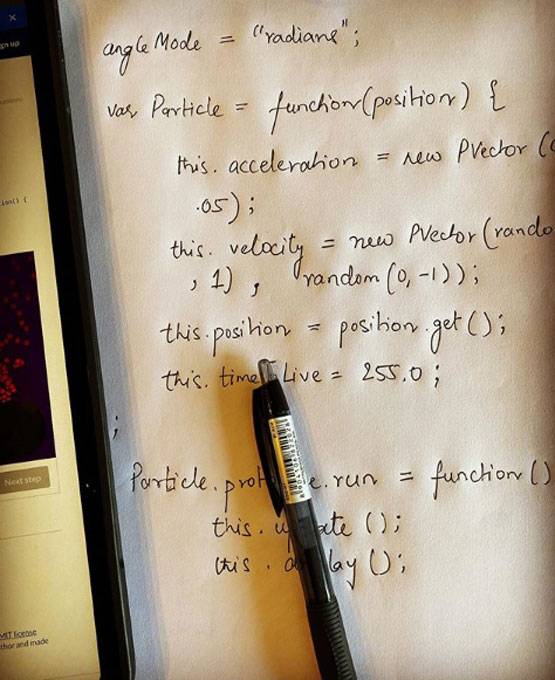 × 
sign up
tion() {
Next step
MIT license
thor and made
angleMode = "radians";
var Particle = function(position) {
this.acceleration = new PVector(
.05);
this.velocity = new PVector(rando
, 1), random(0, -1));
this.position = position.get();
this.time Live = 255.0;
;
Particle.prot e.run = function()
this.u ate();
this.d lay();